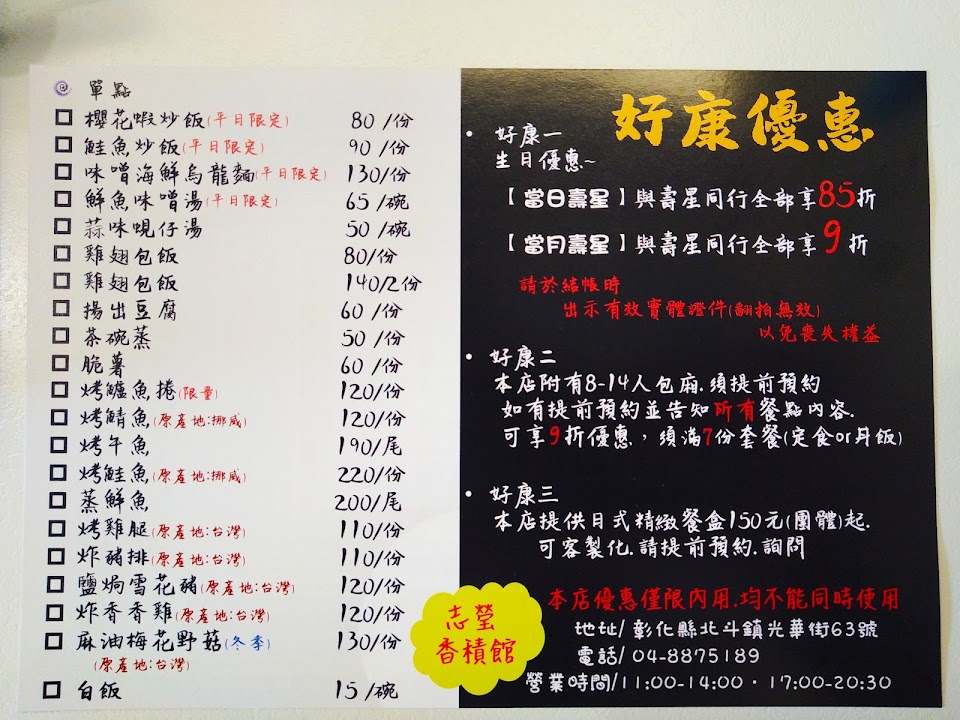 單點
櫻花蝦炒飯(平日限定) 80/份
鮭魚炒飯(平日限定) 90/份
味噌海鮮烏龍麵(平日限定) 130/份
鮮魚味噌湯(平日限定) 65/碗
蒜味蜆仔湯 50/碗
雞翅包飯 80/份
雞翅包飯 140/2份
揚出豆腐 60/份
茶碗蒸 50/份
脆薯 60/份
烤鱸魚捲(限量) 120/份
烤鯖魚(原產地:挪威) 120/份
烤午魚 190/尾
烤鮭魚(原產地:挪威) 220/份
蒸鮮魚 200/尾
烤雞腿(原產地:台灣) 110/份
炸豬排(原產地:台灣) 110/份
鹽焗雪花豬(原產地:台灣) 120/份
炸香香雞(原產地:台灣) 120/份
麻油梅花野菇(冬季) 130/份
(原產地:台灣)
白飯 15/碗
志瑩
香積館
好康優惠
• 好康一
生日優惠~
【當日壽星】與壽星同行全部享85折
【當月壽星】與壽星同行全部享9折
請於結帳時
出示有效實體證件(翻拍無效)
以免喪失權益
• 好康二
本店附有8-14人包廂.須提前預約
如有提前預約並告知所有餐點內容.
可享9折優惠，須滿7份套餐(定食or丼飯)
• 好康三
本店提供日式精緻餐盒150元(團體)起.
可客製化.請提前預約.詢問
本店優惠僅限內用.均不能同時使用
地址/彰化縣北斗鎮光華街63號
電話/04-8875189
營業時間/11:00-14:00·17:00-20:30